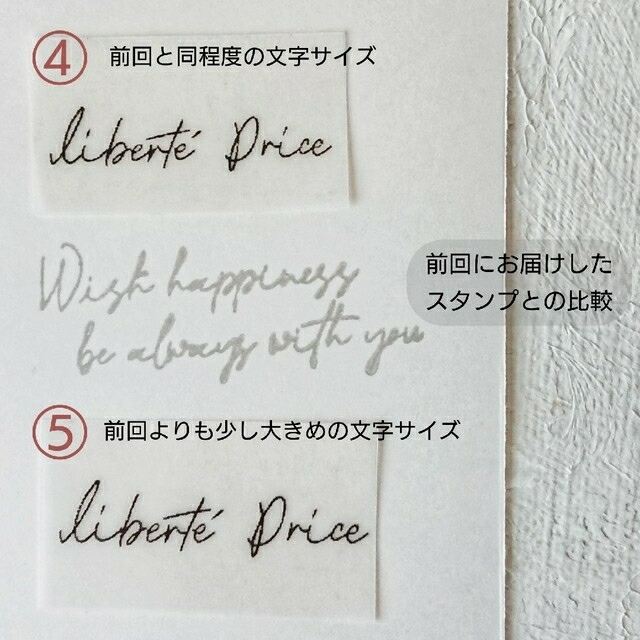 ④ 前回と同程度の文字サイズ
liberté Price
Wish happiness
be always with you
前回にお届けした
スタンプとの比較
⑤ 前回よりも少し大きめの文字サイズ
liberté Price